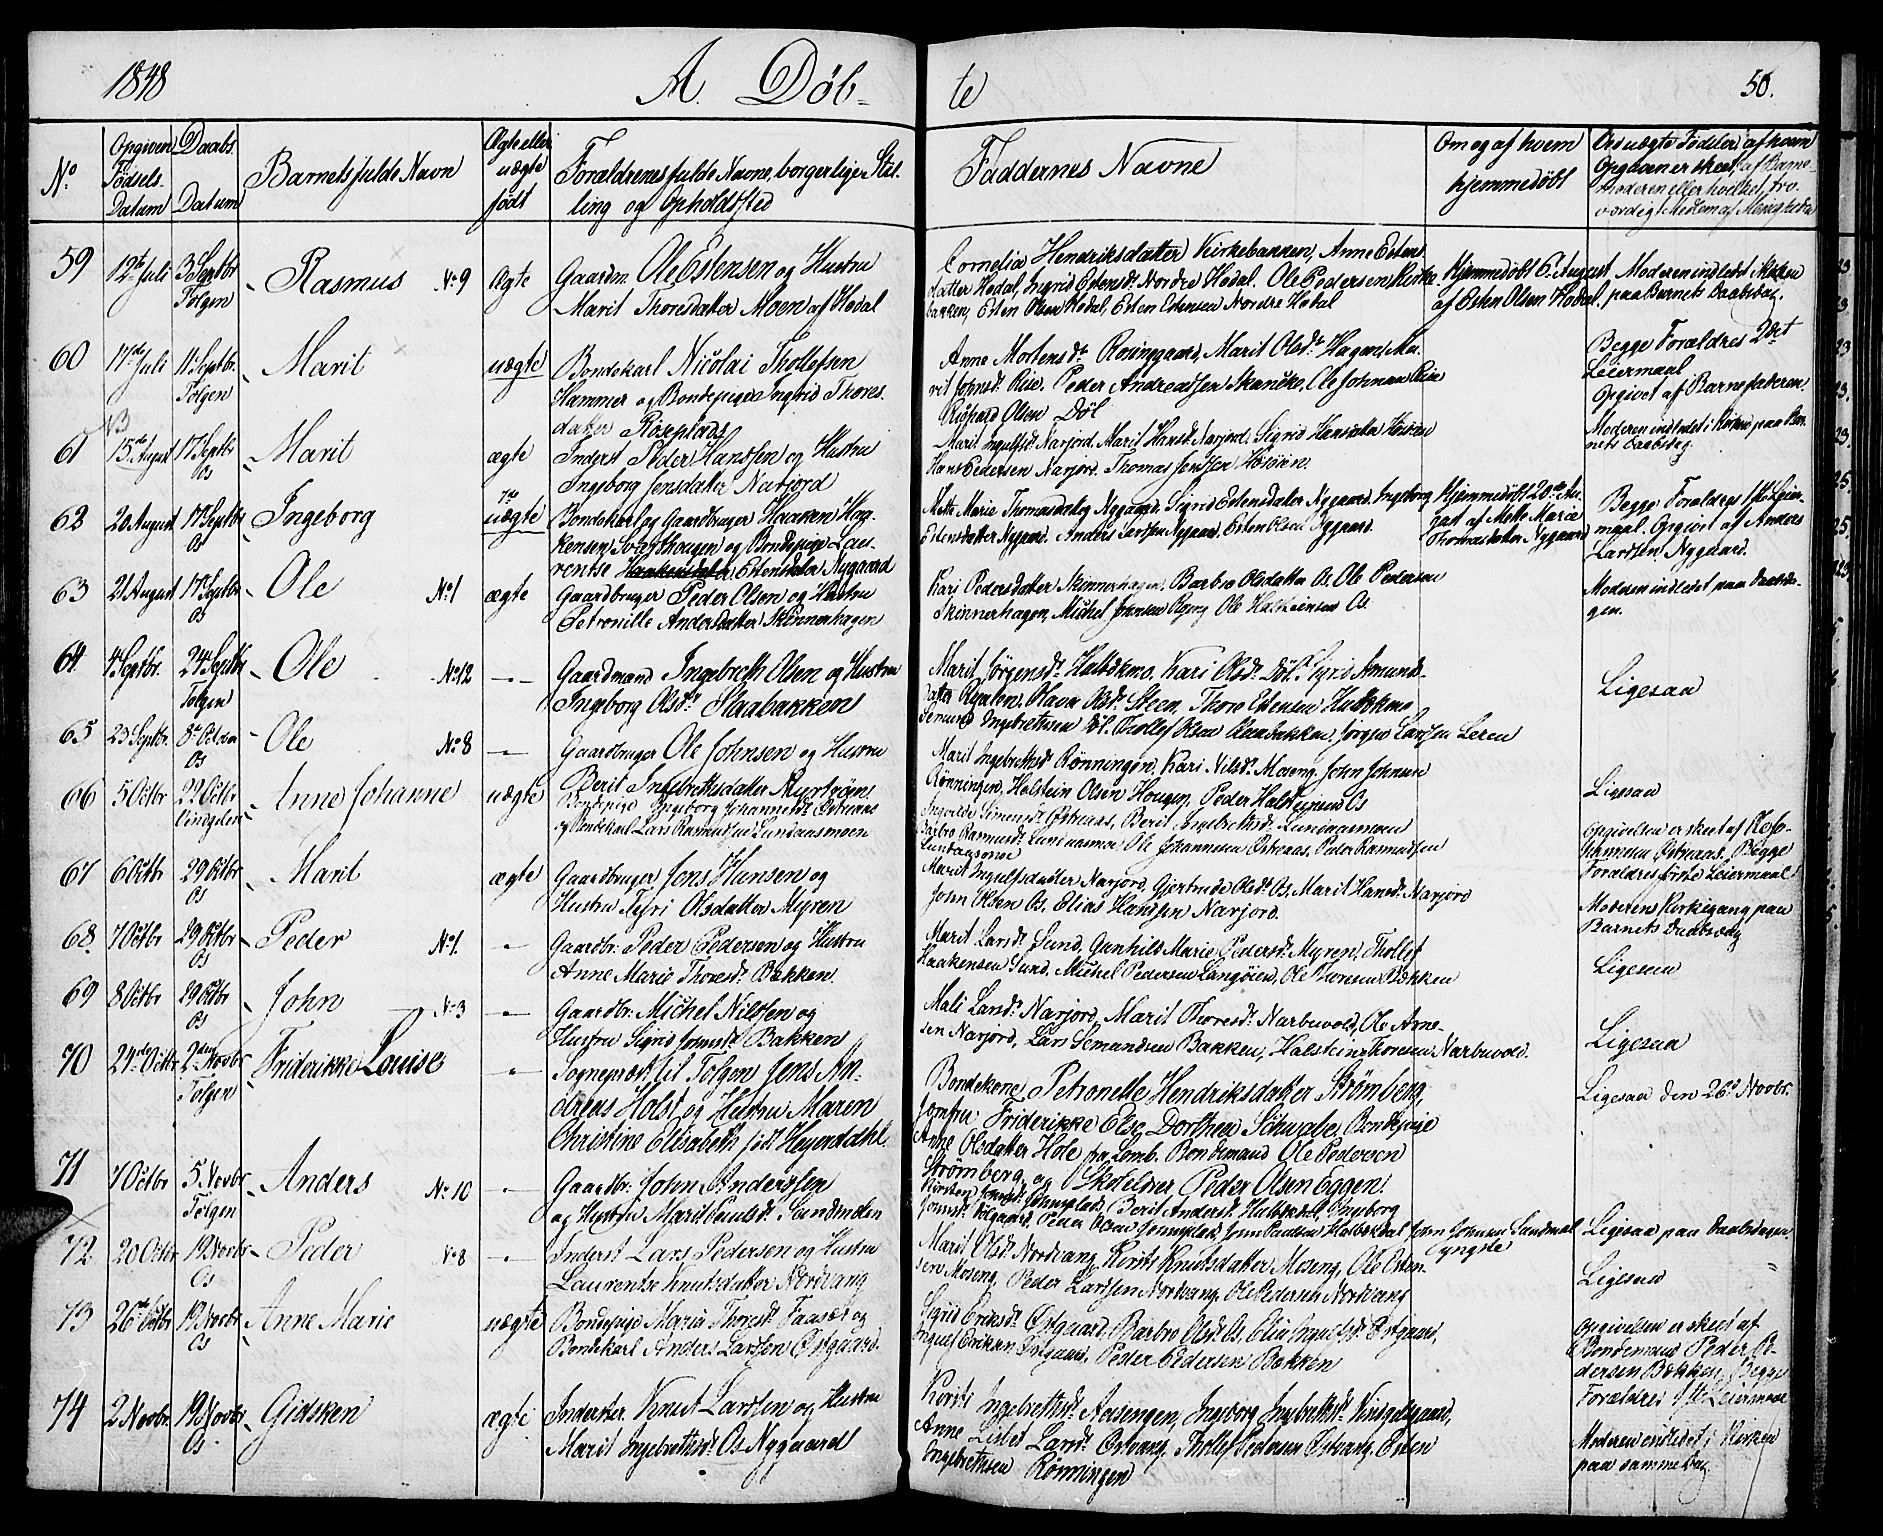 1848
A. Døb-
te
50.
No.
Opgiven Fødsels-Datum
Daabs Datum
Barnets fulde Navn
Ægte eller uægte født
Forældrenes fulde Navne, borgerlige Stilling og Opholdsted
Faddernes Navne
Om og af hvem hjemmedøbt
Ved uægte Fødsler, af hvem Opgaven er skeet,
59
12te Juli
3 Septbr Tolgen
Rasmus No. 9
Ægte
Gaardm. Ole Estensen og Hustru
Marit Thoresdatter Moen af Hodal
Cornelia Hendriksdatter Kirkebakken, Anne Estens
datter Hodal, Ingrid Estensdr. Nordre Hodal. Ole Pedersen Kirke-
bakken, Esten Olsen Hodal, Esten Estensen Nordre Hodal
Hjemmedøbt 6 August
af Esten Olsen Hodal.
Moderen indledet i Kirken
paa Barnets Daabsdag.
60
17de Juli
11 Septbr. Tolgen
Marit
uægte
Bondekarl Nicolai Thollefsen
Hammer og Bondepige Ingrid Thores
datter
Anne Mortensdr. Ma-
rit Johnsdr. Riise. Peder Andreassen Ole Johnsen Riise
Richard Olsen Døl
Begge Forældres 2det
Leiermaal
Opgivet af Barnefaderen.
61
15de August
17 Septbr Os
Marit
ægte
Inderst Peder Hanssen og Hustru
Ingeborg Jensdatter Narjord
Marit Ingulfsdr. Narjord, Marit Hansdr. Narjord. Sigrid Hansdatter
Hans Pedersen Narjord. Thomas Jenssen
Moderen indledet i Kirken paa Bar-
nets Daabsdag.
62
20 August
17 Septbr Os
Ingeborg
uægte
Bondekarl og Gaardbruger Haaken Haa-
kensen Svarthougen og Bondepige Lau-
rentse Estensdatter Nygaard
Mette Marie Thomasdatter Nygaard. Sigrid Estensdatter Nygaard. Ingeborg
Estensdatter Nygaard. Anders Larssen Nygaard. Esten Olsen Nygaard.
Hjemmedøbt 20de Au-
gust af Mette Marie
Thomasdatter Nygaard
Begge Forældres 1ste Leier-
maal. Opgivet af Anders
Larssen Nygaard.
63
21 August
17 Septbr Os
Ole No. 1
ægte
Gaardbruger Peder Olsen og Hustru
Petronille Andersdatter Skinnerhagen
Kari Pedersdatter Skinnerhagen, Barbro Olsdatter Os. Ole Pedersen
Skinnerhagen, Michel Johnsen Ole Halsteinsen Os.
Moderen indledet paa Daabsda-
gen.
64
4 Septbr.
24 Septbr Tolgen
Ole No. 12
Gaardmand Ingebreth Olsen og Hustru
Ingeborg Olsdr. Staabakken
Marit Jørgensdr. Kari Olsdr. Døl. Syrid Amunds-
datter Olava Olsdr. Steen. Thore Estensen
Semund Ingebrethsen Døl. Thollef Olsen Jørgen Larssen Leren
Ligesaa
65
23 Septbr.
8 October Os
Ole No. 8
Gaardbruger Ole Johnsen og Hustru
Berit Ingebrethsdatter
Marit Ingebrethsdr. Rønningen, Kari Nilsdr. Moseng. John Johnsen
Rønningen, Halstein Olsen Hougen, Peder Halsteinsen Os
Ligesaa
66
5 Octbr
22 Octbr Vingelen
Anne Johanne
uægte
Bondepige Ingeborg Johannesdr. Østraas
og Bondekarl Lars Rasmussen Lundaasmoen
Simensdr. Østraas, Berit Ingebrethsdr. Lundaasmoen
Barbro Rasmusdr. Lundaasmoe Ole Johannesen Østraas. Peder Rasmussen
Lundaasmoe
Opgivelsen er skeet af Ole Jo-
hannesen Østraas. Begge
Forældres første Leiermaal.
67
6 Octbr
29 Octbr Os
Marit
ægte
Gaardbruger Jens Hansen og
Hustru Siri Olsdatter Myren
Marit Ingulfsdatter Narjord, Gjertrude Olsdr. Os. Marit Hansdr. Narjord
John Olsen Os. Elias Hanssen Narjord.
Moderens Kirkegang paa
Barnets Daabsdag
68
7 Octbr
29 Octbr Os
Peder No. 1.
Gaardbr. Peder Pedersen og Hustru
Anne Marie Thoresdr. Bakken.
Marit Larsdr. Sund, Gunhild Marie Pedersdr. Myren, Thollef
Haakensen Sund. Michel Pedersen Langøien, Ole Thoresen Bakken
Ligesaa
69
8 Octbr
29 Octbr Os
John No. 3
Gaardbr. Michel Nilssen og
Hustru Sigrid Johnsdr. Bakken
Mali Larsdr. Narjord, Marit Thoresdr. Narbuvold, Ole Arne-
sen Narjord, Lars Semundsen Bakken, Halstein Thoresen Narbuvold.
Ligesaa
70
24de Octbr
2den Novbr Tolgen
Friderikke Louise
Sogneprest til Tolgen Jens An-
dreas Holst og Hustru Maren
Christine Elisabeth født Heyerdahl
Bondekone Petronelle Hendriksdatter Strømberg,
Jomfru Friderikke Else Dorthea Schwabe, Bondepige
Anne Olsdatter Hole fra Lomb. Bondemand Ole Pedersen
Strømberg og Skoleærer Peder Olsen Eggen.
Ligesaa den 26de Novbr.
71
7 Octbr
5 Novbr Tolgen
Anders No. 10
Gaardbr. John Anderssen
og Hustru Marit Poulsdr. Sandmælen
Kirsten Johnsdr. Berit Andersdr. Ingeborg
Johnsdr. Peder Olsen John Paulsen John Johnsen Sandmæl
yngste
Ligesaa paa Daabsdagen
72
20 Octbr
19 Novbr Os
Peder No. 8
Inderst Lars Pedersen og Hustru
Laurentse Knutsdatter Nordvang
Marit Olsdr. Nordvang, Kirsti Knutsdatter Moseng, Ole Osten-
sen Moseng. Peder Larssen Nordvang, Ole Pedersen Nordvang
Ligesaa
73
26de Octbr
19 Novbr Os
Anne Marie
uægte
Bondepige Marie Thoresdr. Faaset og
Bondekarl Anders Larssen Østgaard.
Sigrid Eriksdr. Østgaard, Barbro Olsdr. Os, Elie Ingulfsdr. Østgaard,
Ingulf Eriksen Østgaard. Peder Pedersen Bakken
Opgivelsen er skeet af
Bondemand Peder Pe-
dersen Bakken. Begge
Forældres 1ste Leiermaal
74
2 Novbr.
19 Novbr Os.
Gidsken
ægte
Inderster. Knut Larssen og Hustru
Marit Ingebrethsdr. Os Nygaard
Kirsti Ingebrethsdr. Aasengen, Ingeborg Ingebrethsdr. Vingelsgaard,
Anne Lisbet Larsdr. Østvang, Thollef Pedersen Østvang, Esten
Ingebrethsen Rønningen
Moderen indledet i Kirken
paa samme Dag.